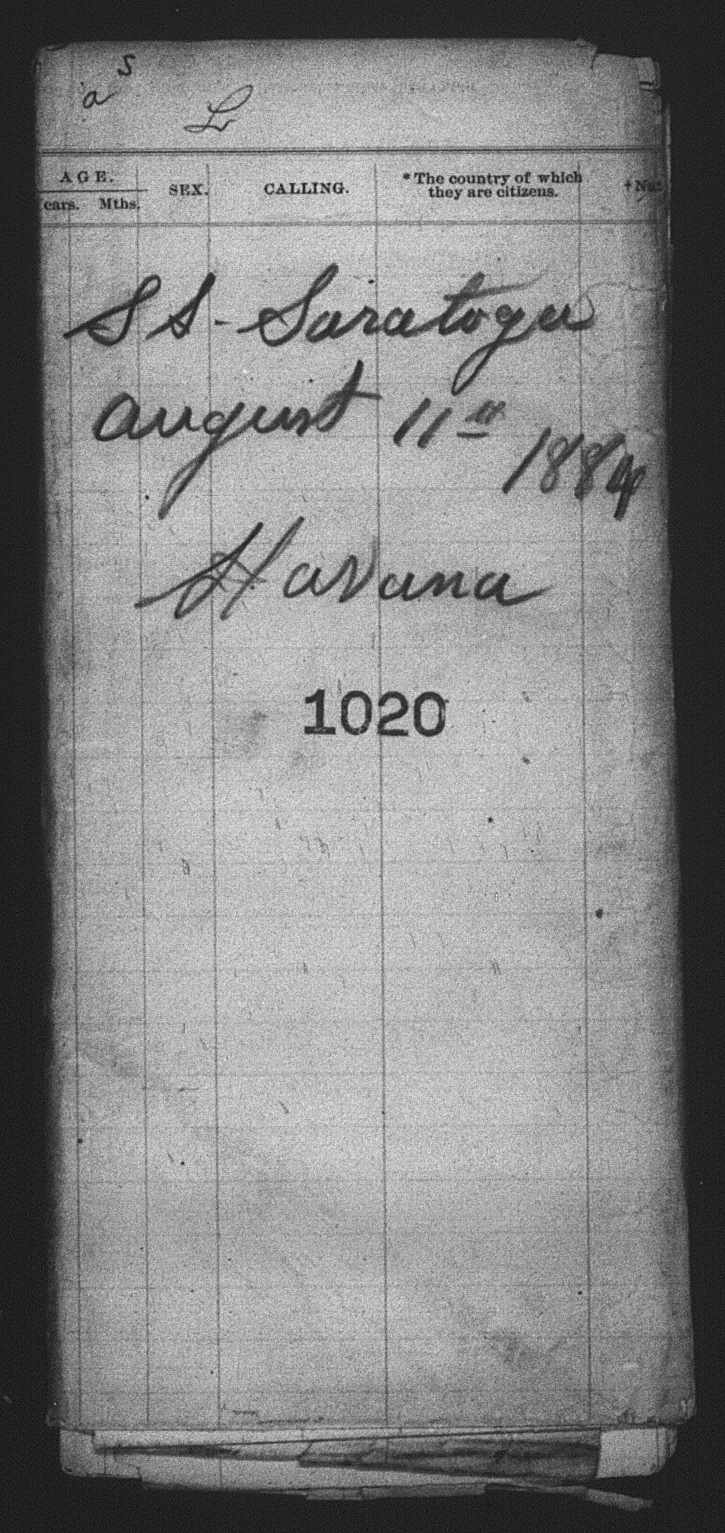 a s
L
AGE.
ears. Mths. SEX. CALLING. * The country of which they are citizens.
S S - Saratoga
August 11th 1884
Havana
1020